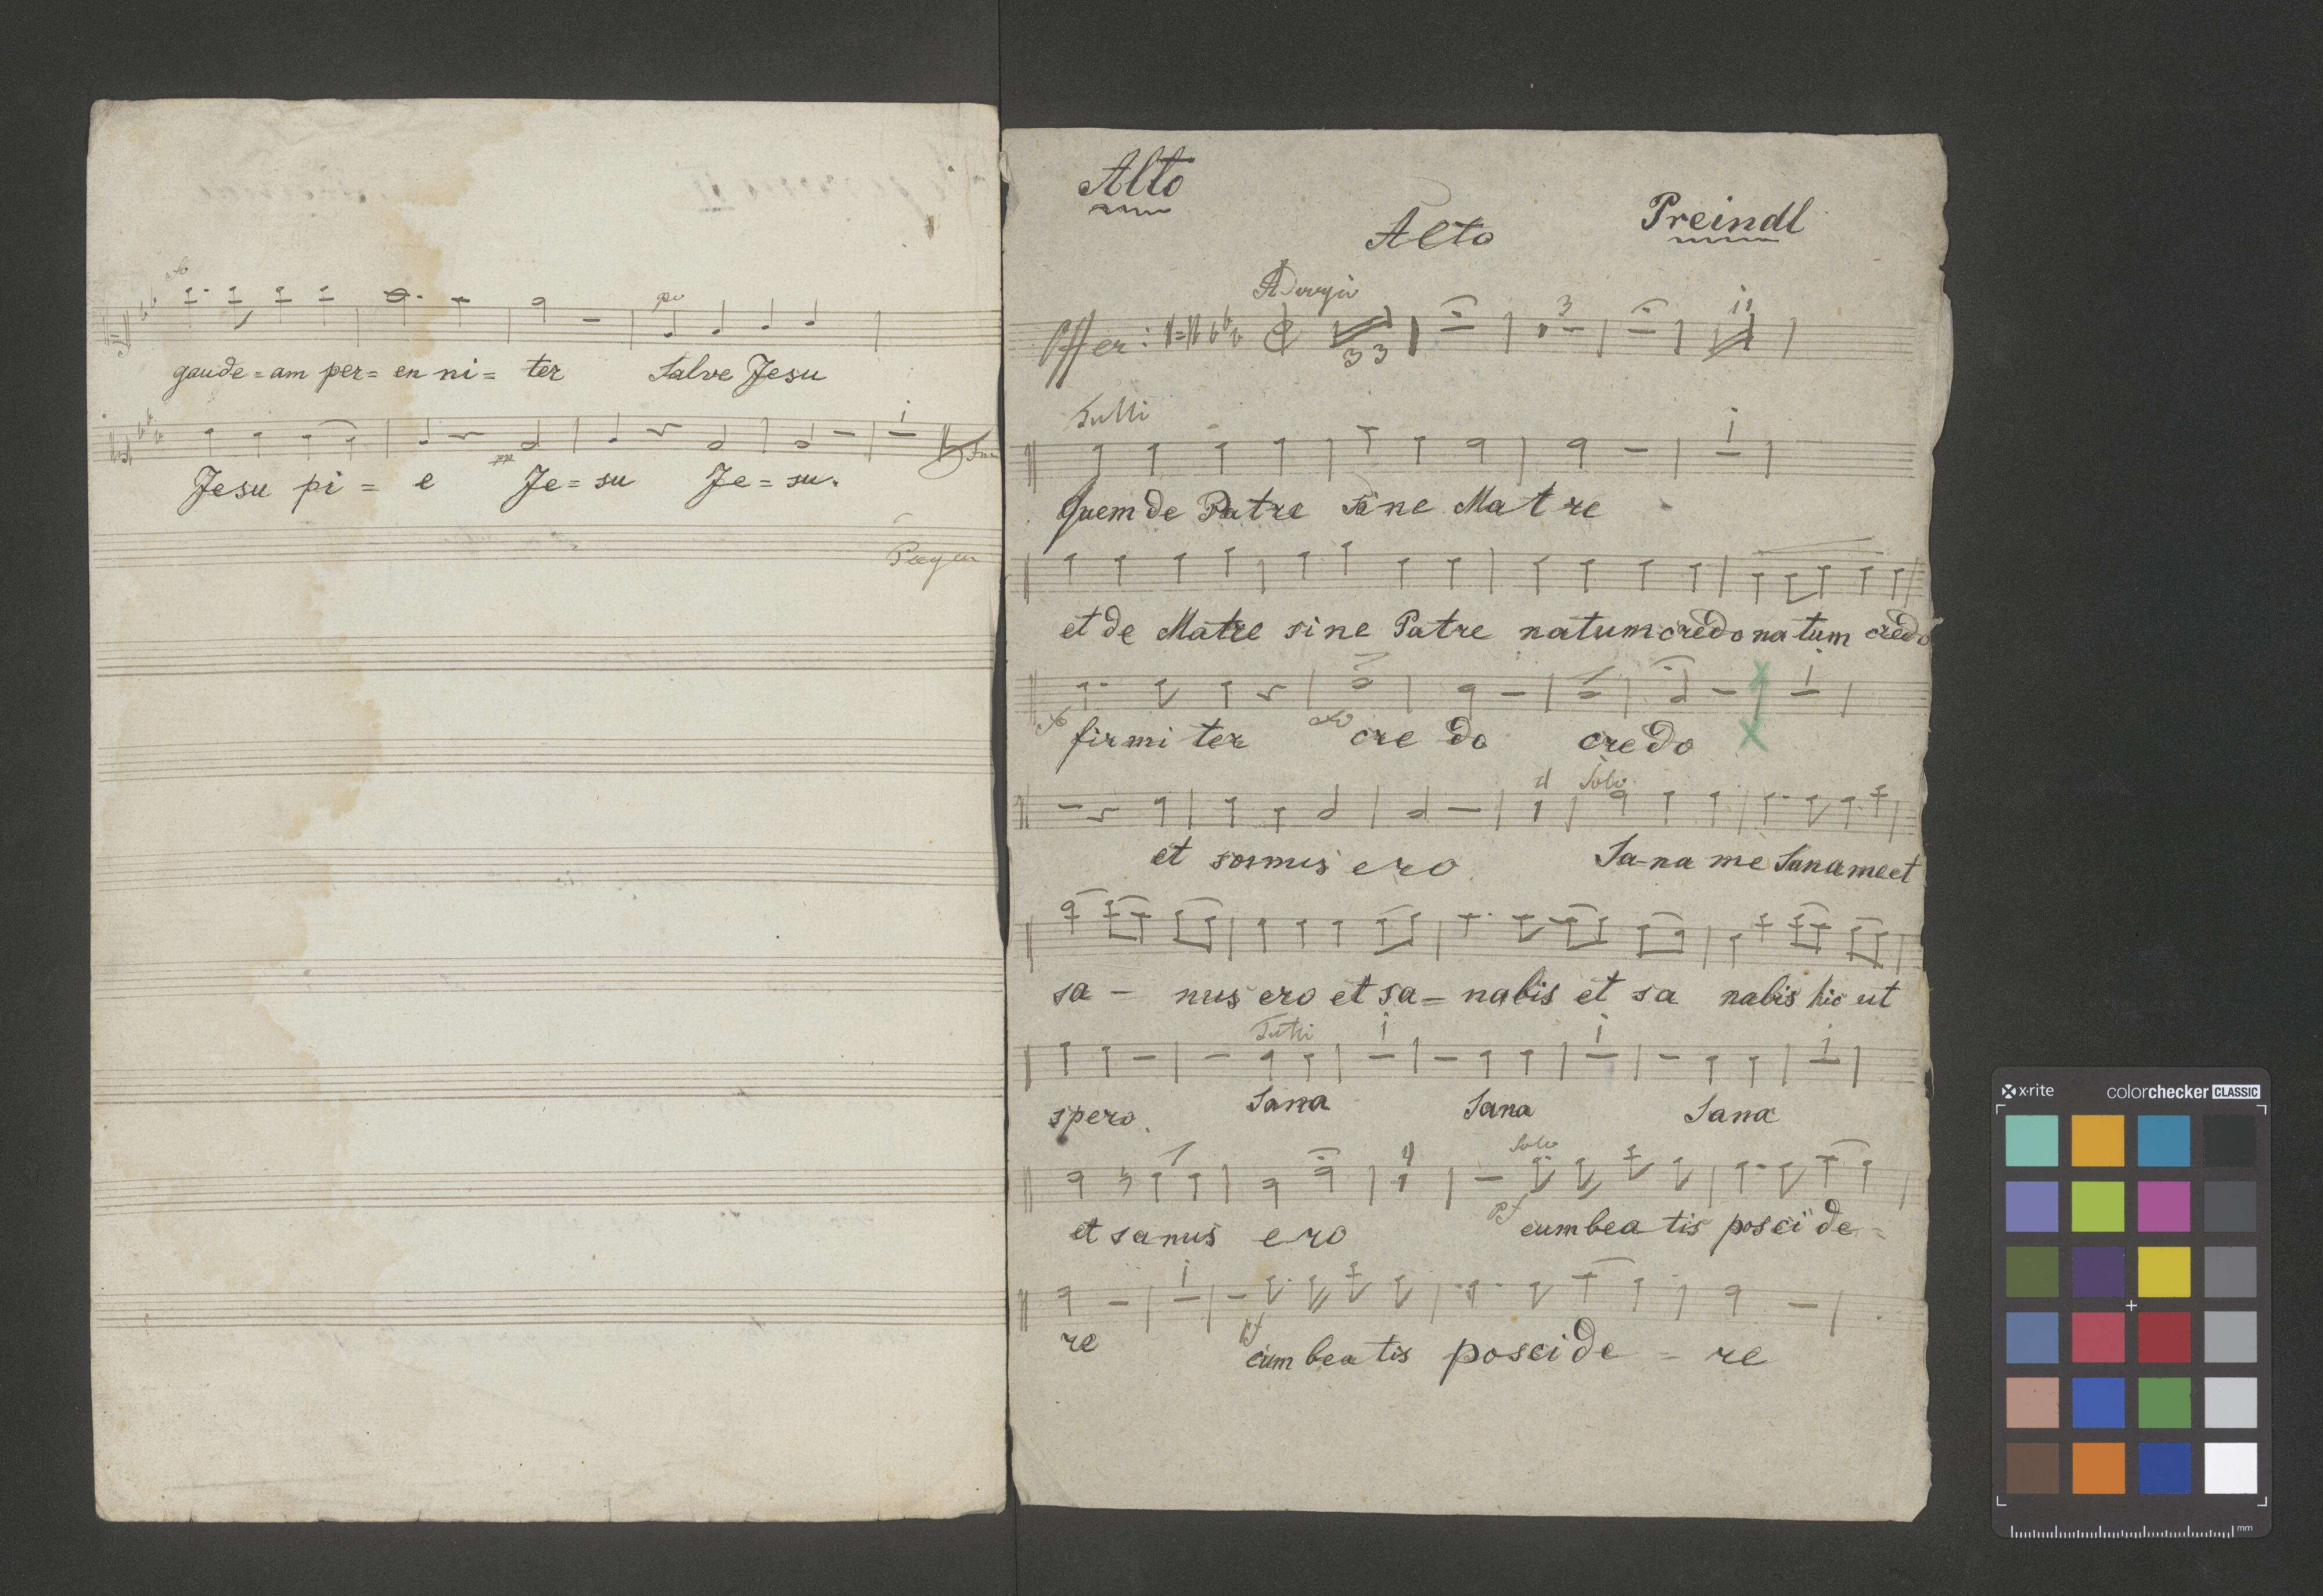 fo
gaude=am per= en ni= ter
po
Salve Jesu
Jesu pi = e
pp
Je=su Je=su.
Alto
Alto
Preindl
Adagio
Offer:
33
3
11
Tutti
Quem de Patre sine Matre
et de Matre sine Patre natum credo natum credo
fo firmi ter fo cre do credo
4 Solo
et sanus ero Sa-na me Sana me et
sa - nus ero et sa= nabis et sa nabis hic ut
Tutti
spero. Sana Sana Sana
Solo
et sanus ero pf cum bea tis posci de=
re pf cum bea tis posci de = re
x-rite colorchecker CLASSIC
mm